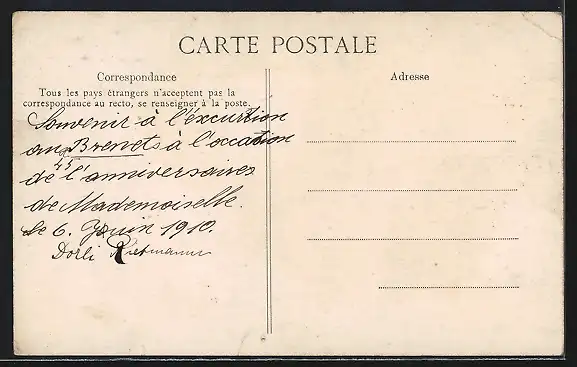 CARTE POSTALE
Correspondance
Adresse
Tous les pays étrangers n'acceptent pas la
correspondance au recto, se renseigner à la poste.
Souvenir à l'excurtion
aux Brenets à l'occation
de 45 l'anniversaires
de Mademoiselle.
le 6. Juin 1910.
Dorli